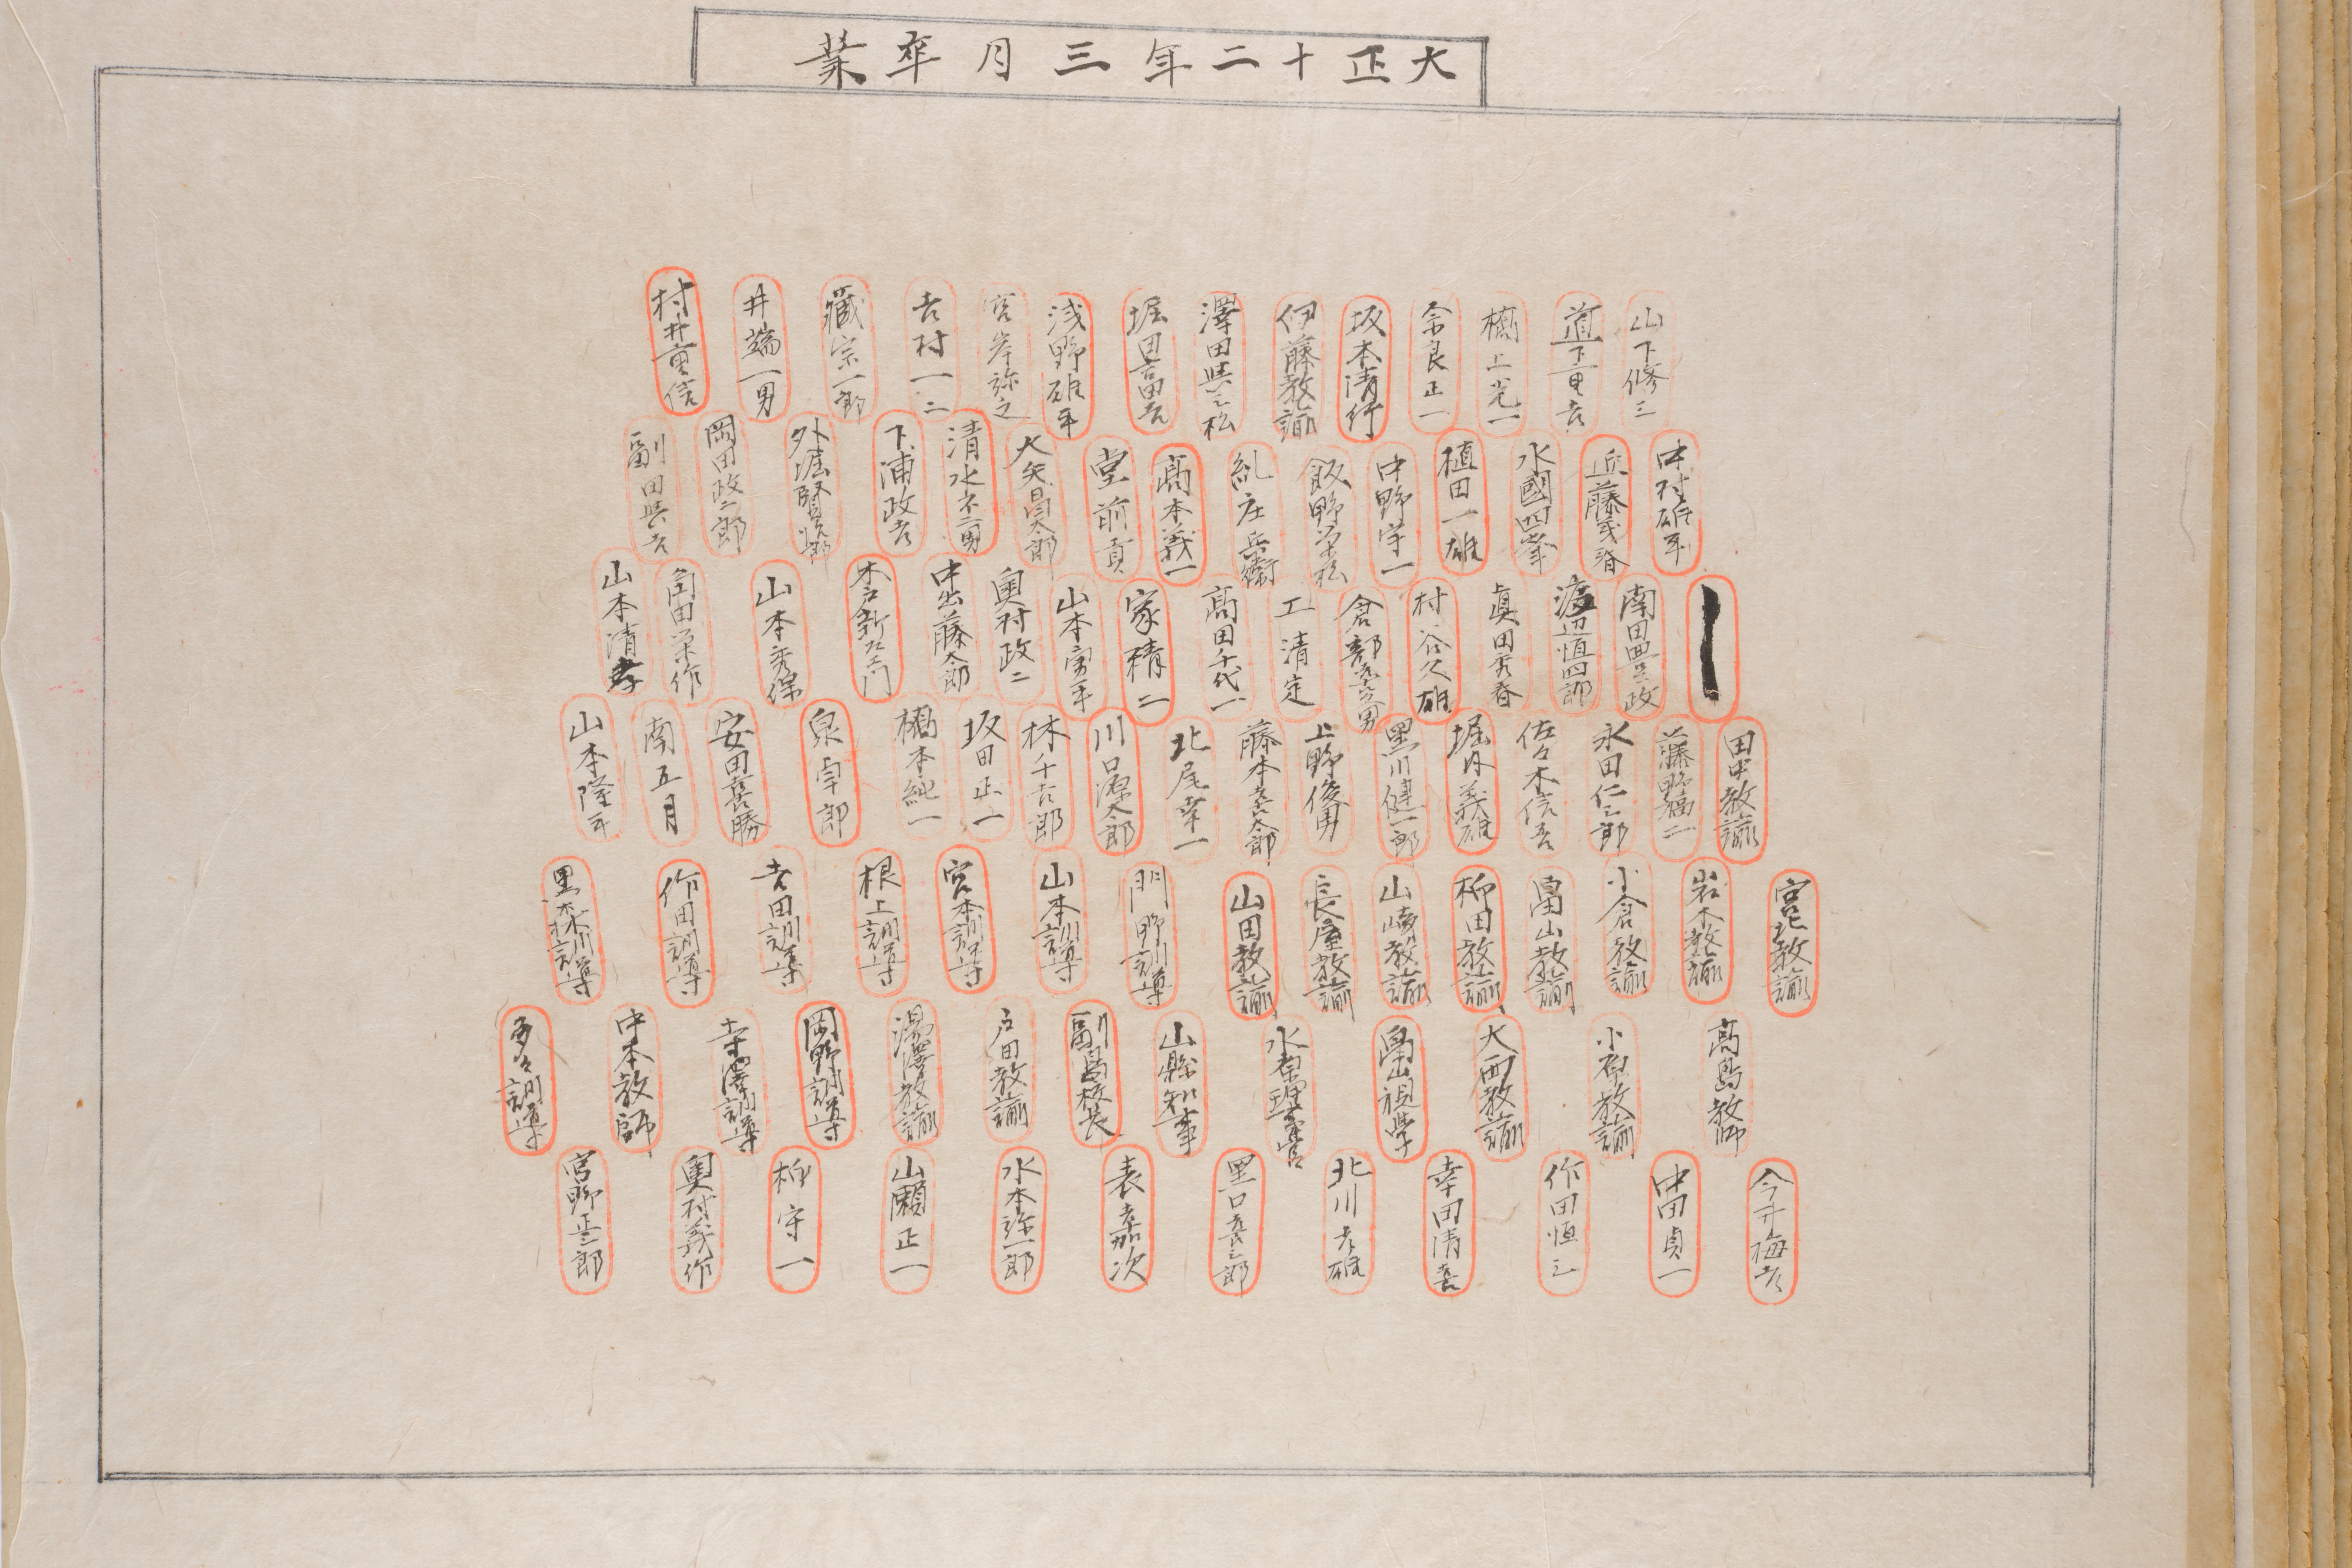 大正十二年三月卒業
山下修三
道下重吉
橋上光一
奈良正一
坂本清行
伊藤教諭
澤田與三松
堀田富吉
浅野雄平
宮岸弥之
吉村一二
藏宗一郎
井端一男
村井重信
中村雄平
近藤武春
水國四峯
植田一雄
中野宇一
飯野栄松
糺庄兵衛
高本義一
堂前貢
大矢昌太郎
清水不二男
下浦政吉
外堀賢次郎
岡田政二郎
副田與吉
南田豊政
渡辺恒四郎
眞田秀春
村谷久雄
倉部喜久男
工清定
高田千代一
家積二
山本勇平
奥村政二
中出藤太郎
木戸新左エ門
山本秀保
角田栄作
山本清孝
田中教諭
藤野福二
永田仁三郎
佐々木信吾
堀内義雄
黒川健一郎
上野俊男
藤本喜太郎
北尾幸一
川口源太郎
林千吉郎
坂田正一
橋本純一
泉幸郎
安田喜勝
南五月
山本隆平
宮北教諭
岩木教諭
小倉教諭
畠山教諭
柳田教諭
山崎教諭
長屋教諭
山田教諭
門野訓導
山本訓導
宮本訓導
根上訓導
吉田訓導
作田訓導
黒森訓導
高島教師
小原教諭
大西教諭
畠山視学
水原理事官
山縣知事
副島校長
戸田教諭
湯澤教諭
岡野訓導
寺澤訓導
中本教師
多々訓導
今井梅吉
中田貞一
作田恒三
幸田清喜
北川吉雄
黒口喜三郎
表嘉次
水本弥一郎
山瀬正一
柳守一
奥村義作
宮野正三郎